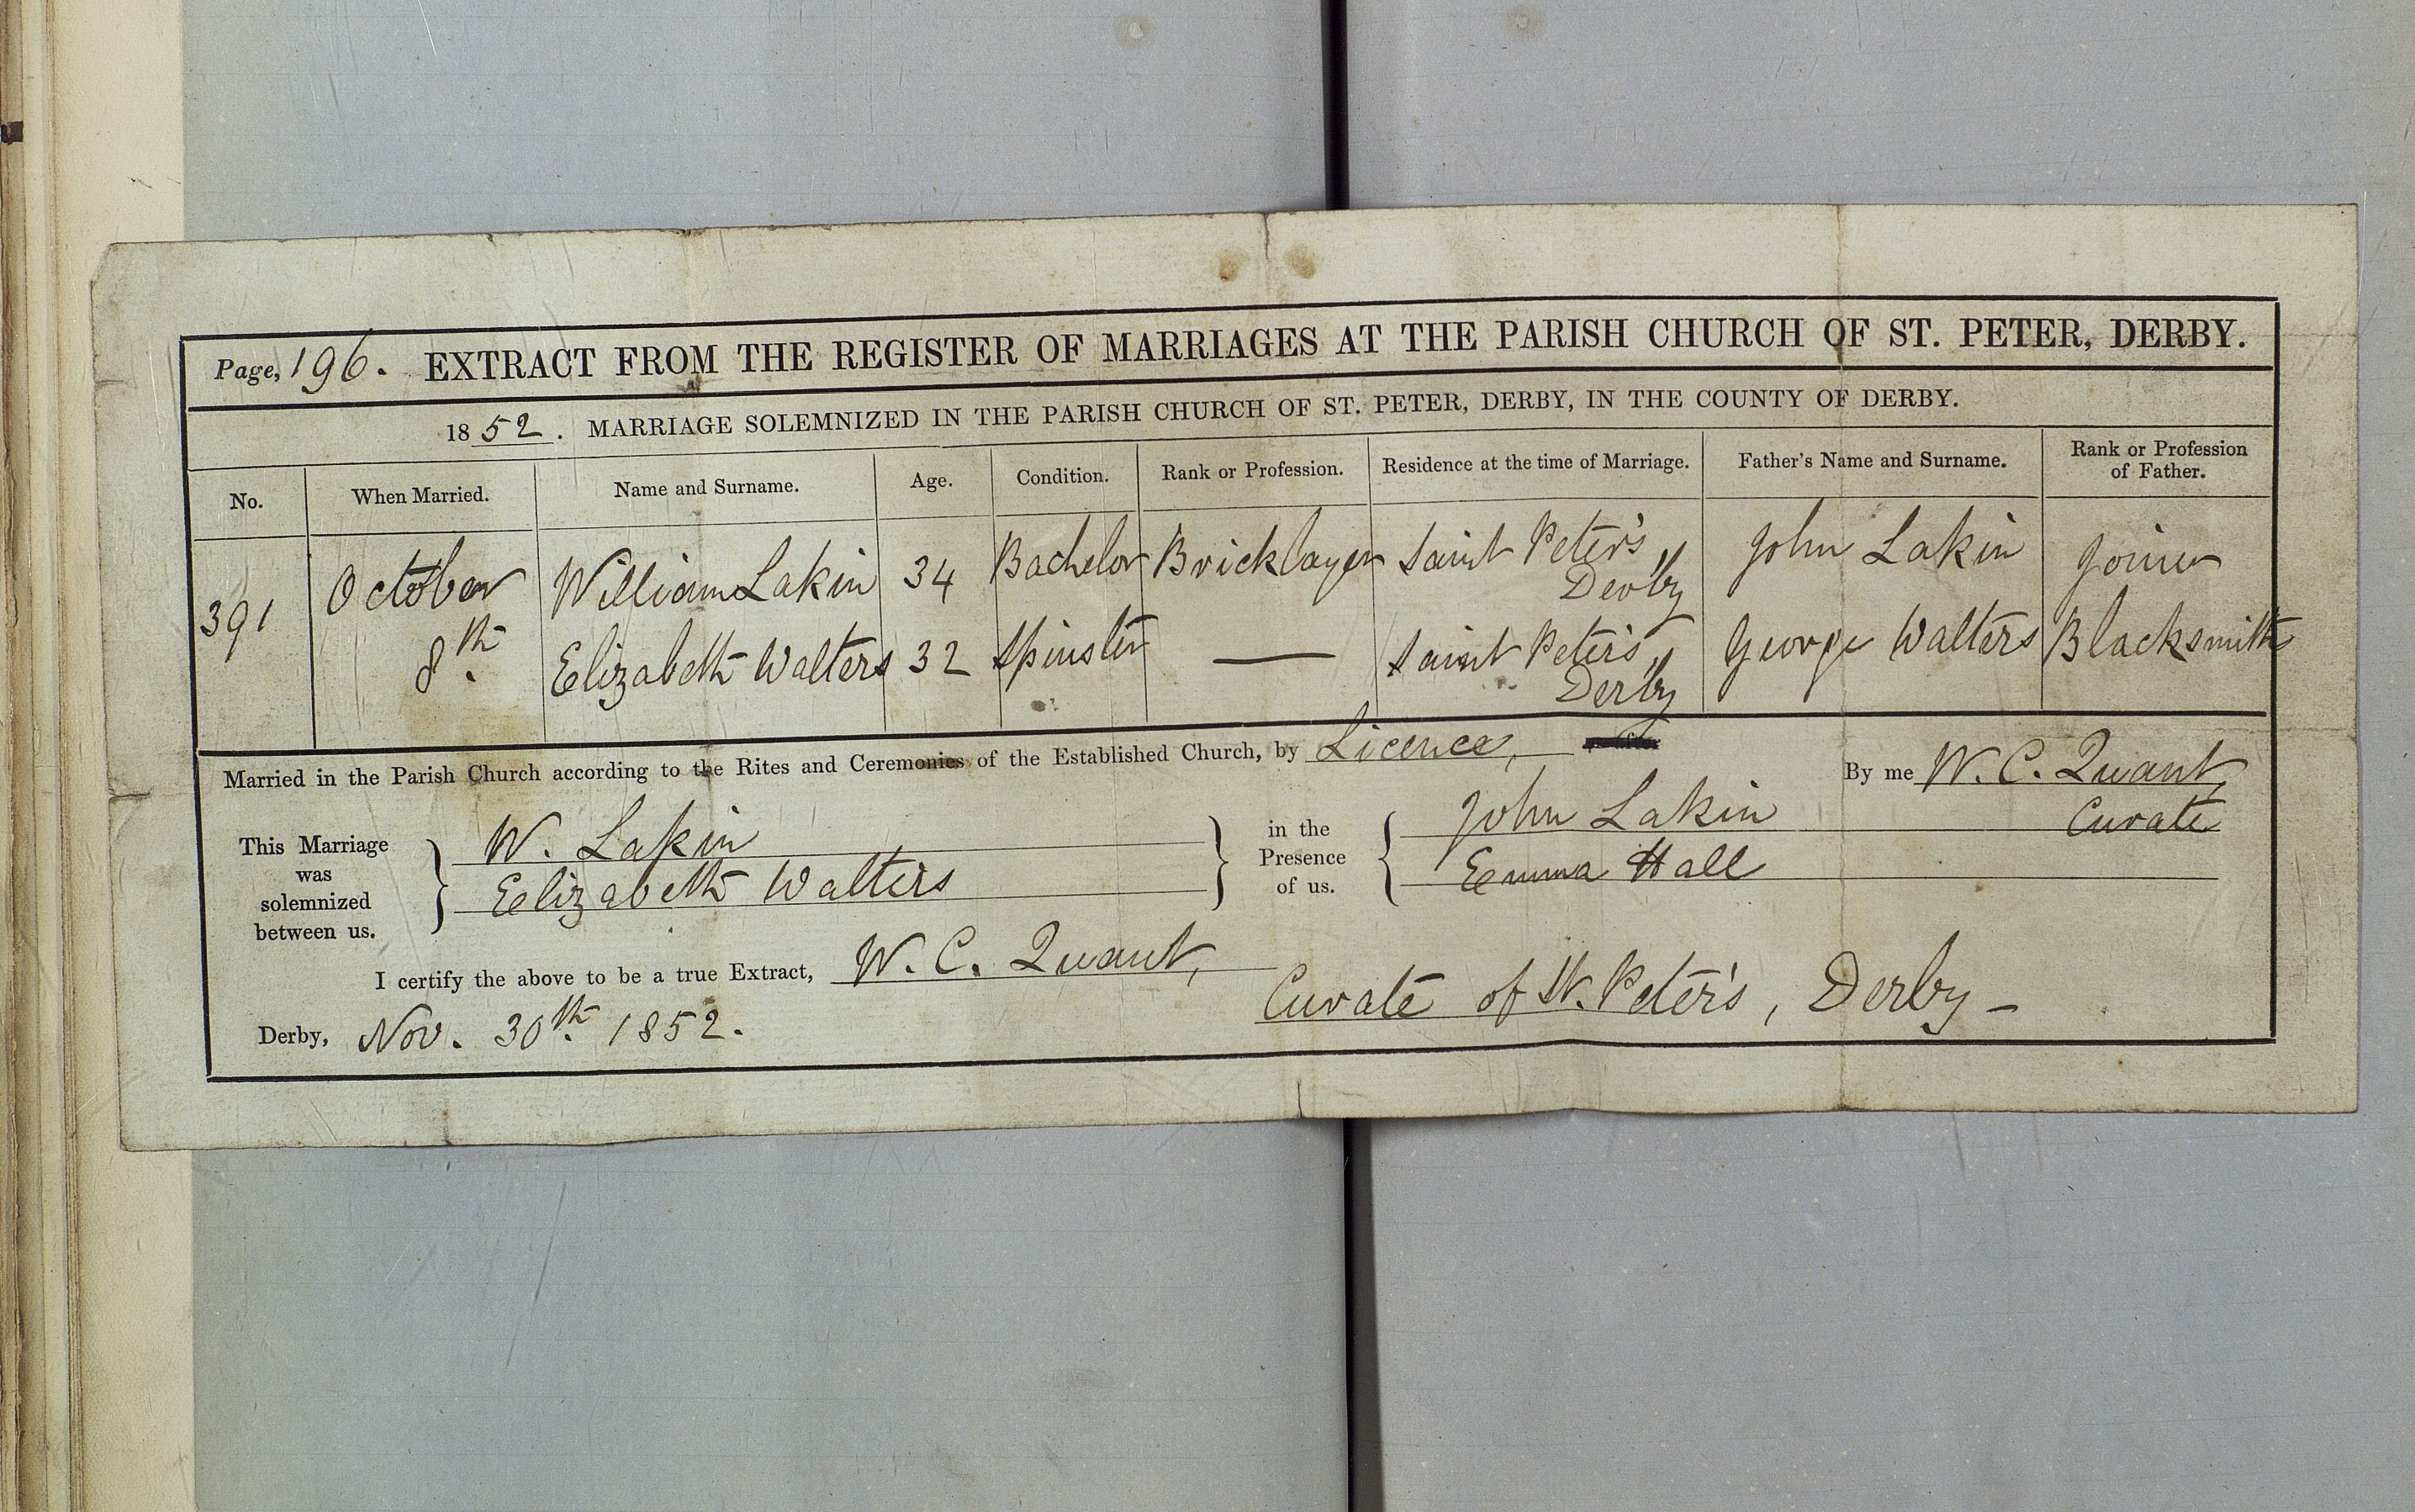 Page, 196. EXTRACT FROM THE REGISTER OF MARRIAGES AT THE PARISH CHURCH OF ST. PETER, DERBY.
1852. MARRIAGE SOLEMNIZED IN THE PARISH CHURCH OF ST. PETER, DERBY, IN THE COUNTY OF DERBY.
No. When Married. Name and Surname. Age. Condition. Rank or Profession. Residence at the time of Marriage. Father's Name and Surname. Rank or Profession of Father.
391 October 8th. William Lakin 34 Bachelor Bricklayer Saint Peter's, Derby John Lakin Joiner
Elizabeth Walters 32 Spinster — Saint Peter's, Derby George Walters Blacksmith
Married in the Parish Church according to the Rites and Ceremonies of the Established Church, by Licence,
By me W. C. Quant, Curate
This Marriage was solemnized between us.
W. Lakin
Elizabeth Walters
in the Presence of us.
John Lakin
Emma Hall
I certify the above to be a true Extract, W. C. Quant,
Curate of St. Peter's, Derby -
Derby, Nov. 30th. 1852.